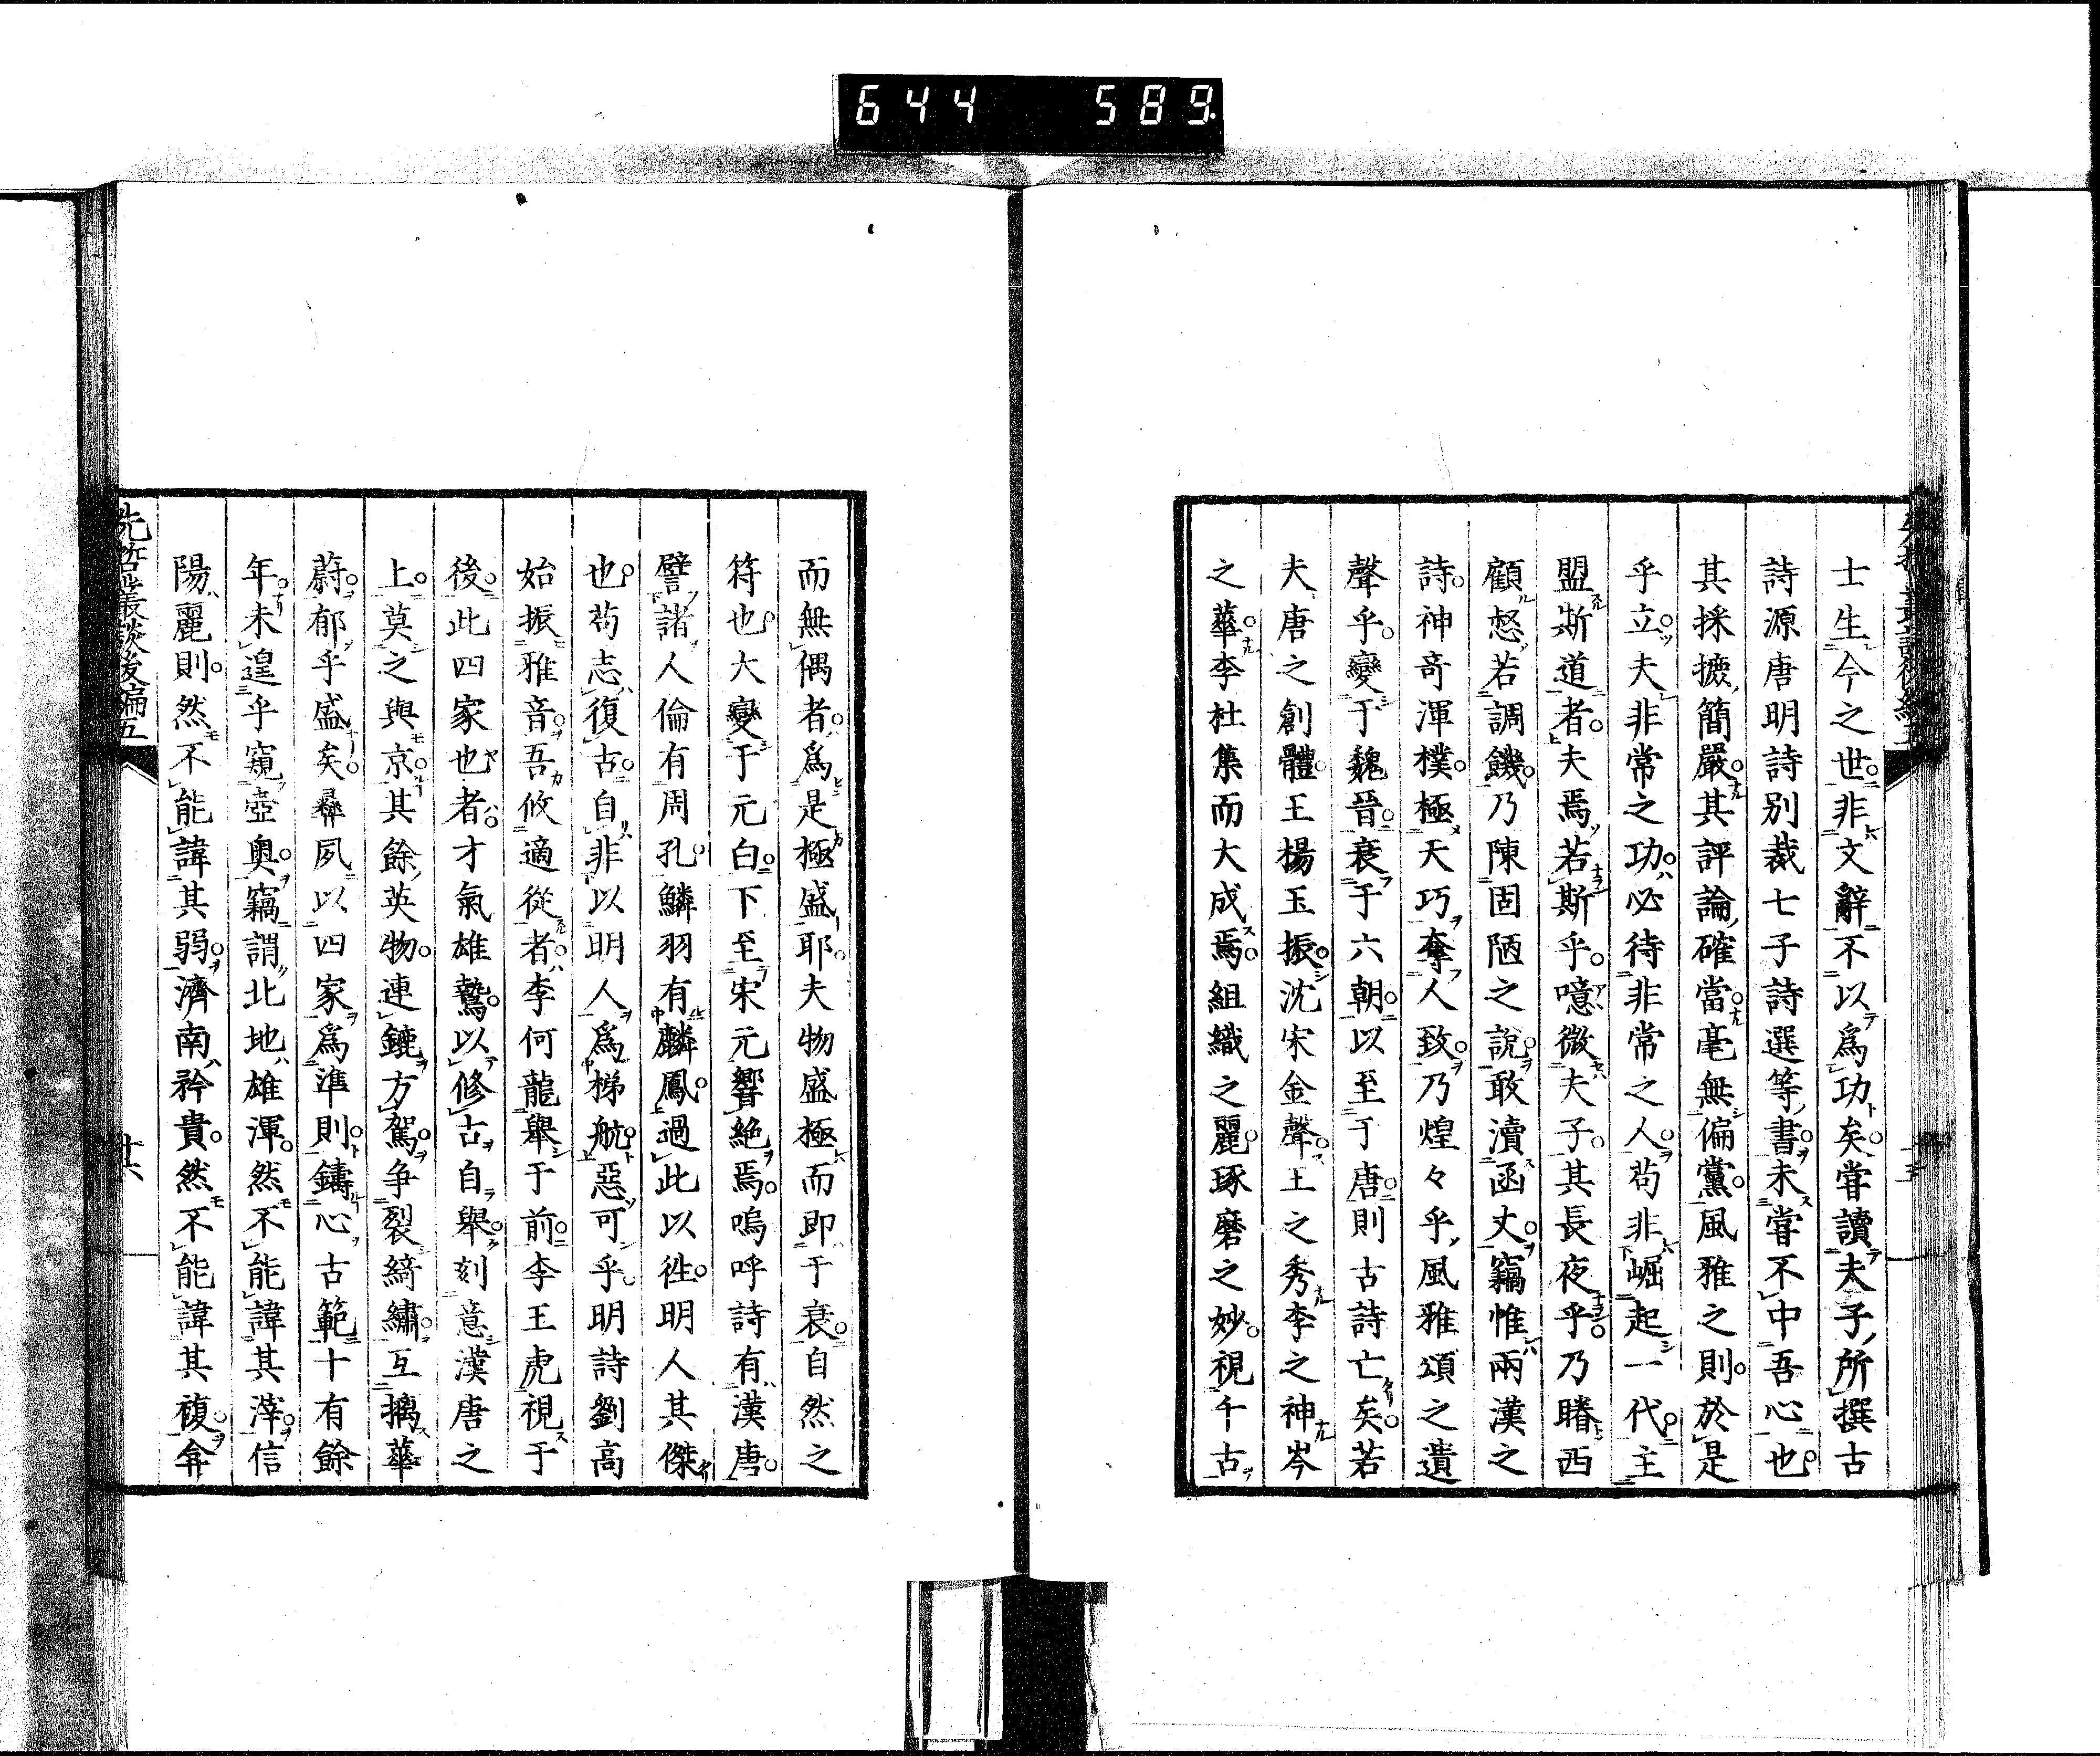 644 589
士生今之世非文辭不以爲功矣嘗讀夫子所撰古
詩源唐明詩別裁七子詩選等書未嘗不中吾心也
其採摭簡嚴其評論確當毫無偏黨風雅之則於是
乎立夫非常之功必待非常之人苟非崛起一代主
盟斯道者夫焉若斯乎噫微夫子其長夜乎乃睠西
顧惄若調饑乃陳固陋之說敢瀆函丈竊惟兩漢之
詩神奇渾樸極天巧奪人致乃煌々乎風雅頌之遺
聲乎變于魏晉衰于六朝以至于唐則古詩亡矣若
夫唐之創體王楊玉振沈宋金聲王之秀李之神岑
之華李杜集而大成焉組織之麗琢磨之妙視千古
而無偶者爲是極盛耶夫物盛極而即于衰自然之
符也大變于元白下至宋元響絶焉嗚呼詩有漢唐
譬諸人倫有周孔鱗羽有麟鳳過此以徃明人其傑
也苟志復古自非以明人爲梯航惡可乎明詩劉高
始振雅音吾攸適從者李何龍舉于前李王虎視于
後此四家也者才氣雄鷙以修古自舉刻意漢唐之
上莫之與京其餘英物連鑣方駕争裂綺繡互摛華
蔚郁乎盛矣彝夙以四家爲準則鑄心古範十有餘
年未遑乎窺壺奥竊謂北地雄渾然不能諱其滓信
陽麗則然不能諱其弱濟南矜貴然不能諱其複弇
先哲叢談後編五
廿六